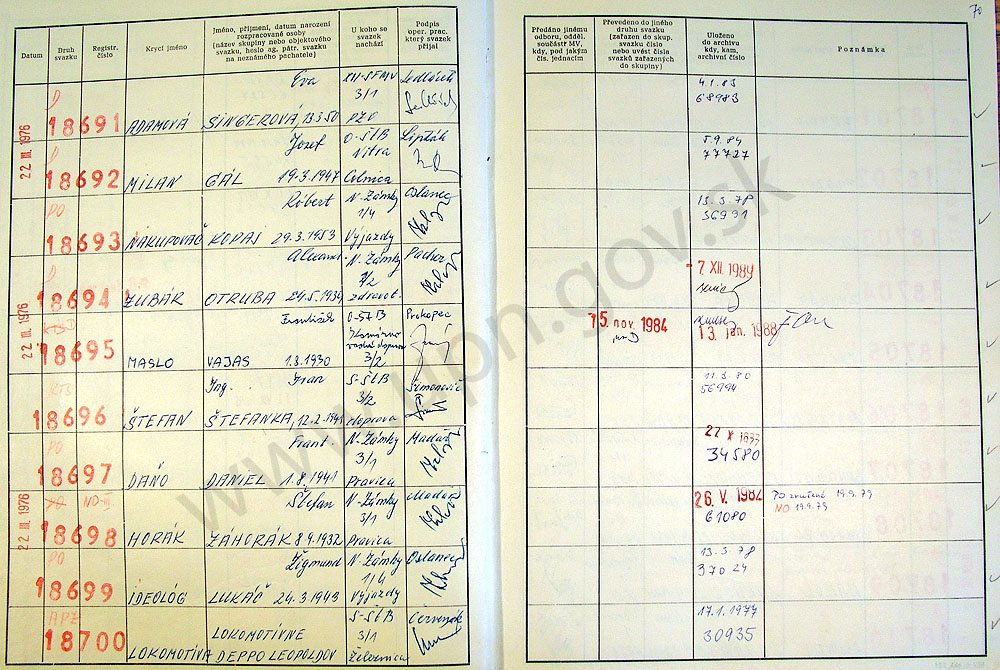 70
Datum
Druh svazku
Registr. číslo
Krycí jméno
Jméno, příjmení, datum narození
rozpracované osoby
(název skupiny nebo objektového
svazku, heslo ag. pátr. svazku
na neznámého pachatele)
U koho se
svazek
nachází
Podpis
oper. prac.
který svazek
přijal
Předáno jinému
odboru, odděl.
součásti MV,
kdy, pod jakým
čís. jednacím
Převedeno do jiného
druhu svazku
(zařazen do skup.
svazku číslo
nebo uvést čísla
svazků zařazených
do skupiny)
Uloženo
do archivu
kdy, kam,
archivní číslo
Poznámka
22 III. 1976
D Eva 3/1 4.1.83
18691 ADAMOVÁ SINGEROVÁ, 13.3.50 68983
D Jozef O-ŠtB Nitra Lipták 5.9.84
18692 MILAN GÁL 19.3.1947 Colnica 77727
PO Róbert N. Zámky 1/4 Oslanec 13.3.78
18693 NÁKUPOVAČ KOPAS 29.3.1953 Výjazdy 36931
D N. Zámky 7/2 - 7 XII. 1984
18694 ZUBÁR OTRUBA 24.5.1934 zdravot.
22 III. 1976
František 3/2 Prokopec 15. nov. 1984 13. jan. 1988
18695 MASLO VAJAS 1.3.1930
Ing. Ivan S-ŠtB 3/2 Šimonovič 11.3.80
18696 ŠTEFAN ŠTEFANKA, doprava 56994
PO Frant. N. Zámky 3/1 Madaš
18697 DAŇO DANIEL 1.8.1941 Pravica 34580
22 III. 1976
ND Štefan N. Zámky 3/1 26. V. 1982 19.9.79
NO 19.9.79
18698 HORÁK ZÁHORÁK 8.9.1932 Pravica 61080
PO Žigmund N. Zámky 1/4 Oslanec 13.3.78
18699 IDEOLÓG LUKÁČ 24.3.1943 Výjazdy 37024
APZ LOKOMOTÍVNE S-ŠtB 3/1 Červenák 17.1.1977
18700 LOKOMOTÍVA DEPPO LEOPOLDOV Železnica 30935
www.upn.gov.sk